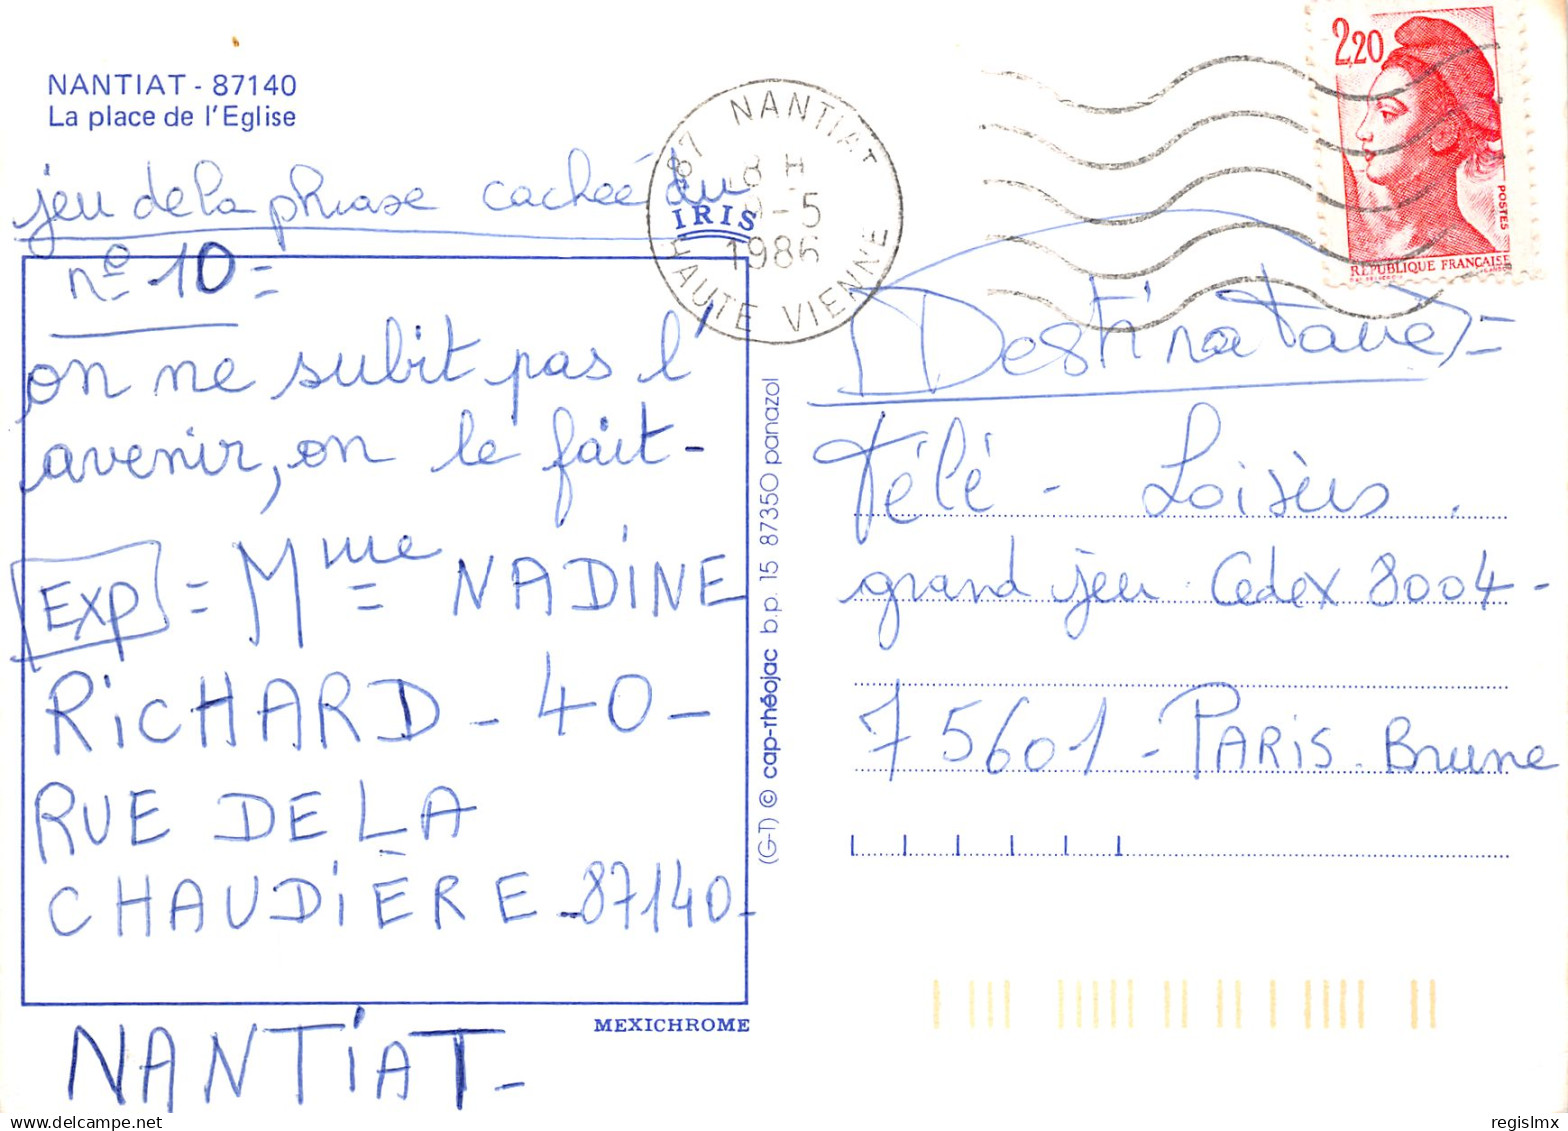 NANTIAT - 87140
La place de l'Eglise
jeu de la phrase cachée du
n° 10 =
on ne subit pas l'
avenir, on le fait -
Exp = Mme NADINE
RiCHARD - 40 -
RUE DE LA
CHAUDiÈRE - 87140 -
NANTiAT -
IRIS
MEXICHROME
(G-T) © cap-théojac b.p. 15 87350 panazol
87 NANTIAT
8 H
-5
1986
HAUTE VIENNE
2,20
POSTES
REPUBLIQUE FRANCAISE
Destinataire =
Télé - Loisirs.
grand jeu Cedex 8004 -
75601 - PARiS. Brune
delcampe.net
regislmx